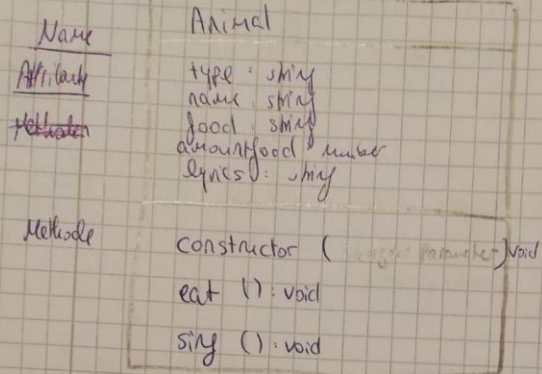 Name Animal
Attribute type: string
name: string
food: string
amountfood: number
lyrics: string
Methode constructor ( Parameter) void
eat (): void
sing (): void